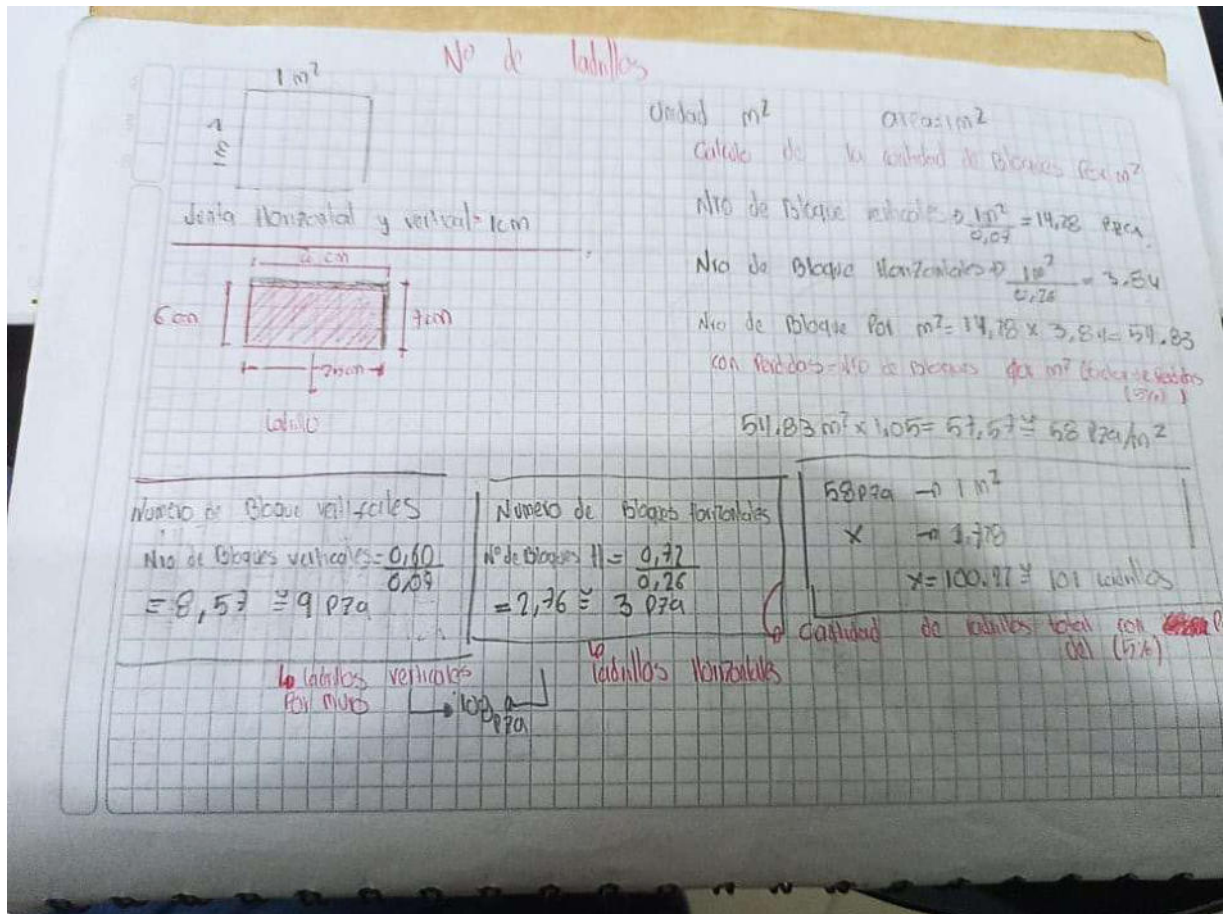 No de ladrillos
1 m²
1 m
Junta Horizontal y vertical = 1cm
6 cm
7cm
26cm
Ladrillo
Unidad m² area=1m²
Calculo de la cantidad de Bloques Por m²
Nro de Bloque verticales → 1m²/0,07 = 14,28 Pza.
Nro de Bloque Horizontales → 1m²/0,26 = 3,84
Nro de Bloque Por m² = 14,28 x 3,84 = 54.83
con Perdidas = Nro de Bloques por m²
(5%)
54.83 m² x 1,05 = 57,57 ≅ 58 Pza/m²
Numero de Bloque verticales
Nro de Bloques verticales = 0,60/0,07
= 8,57 ≅ 9 pza
↳ ladrillos verticales
Por muro
Numero de Bloques Horizontales
N° de Bloques H = 0,72/0,26
= 2,76 ≅ 3 pza
↳ ladrillos Horizontales
108
pza
58 pza → 1 m²
x →
x = 100.92 ≅ 101 ladrillos
↳ Cantidad de ladrillos total con
del (5%)